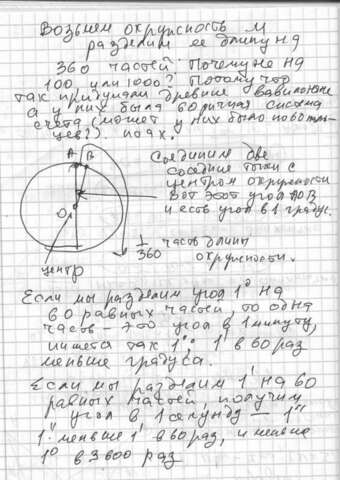 Возьмем окружность и
разделим ее длину на
360 частей. Почему не на
100 или 1000? Потому что
так придумали древние вавилоняне
а у них была 60 ричная система
счета (может у них было по 60 паль-
цев?) на
A B
Соединим две
соседние точки с
центром окружности
Вот этот угол AOB
и есть угол в 1 градус.
O
1/360 часть длины
окружности.
центр
Если мы разделим угол 1° на
60 равных частей то одна
часть – это угол в 1 минуту,
пишется так 1'. 1' в 60 раз
меньше градуса.
Если мы разделим 1' на 60
равных частей, получим
угол в 1 секунду – 1"
1" меньше 1' в 60 раз, и меньше
1° в 3600 раз